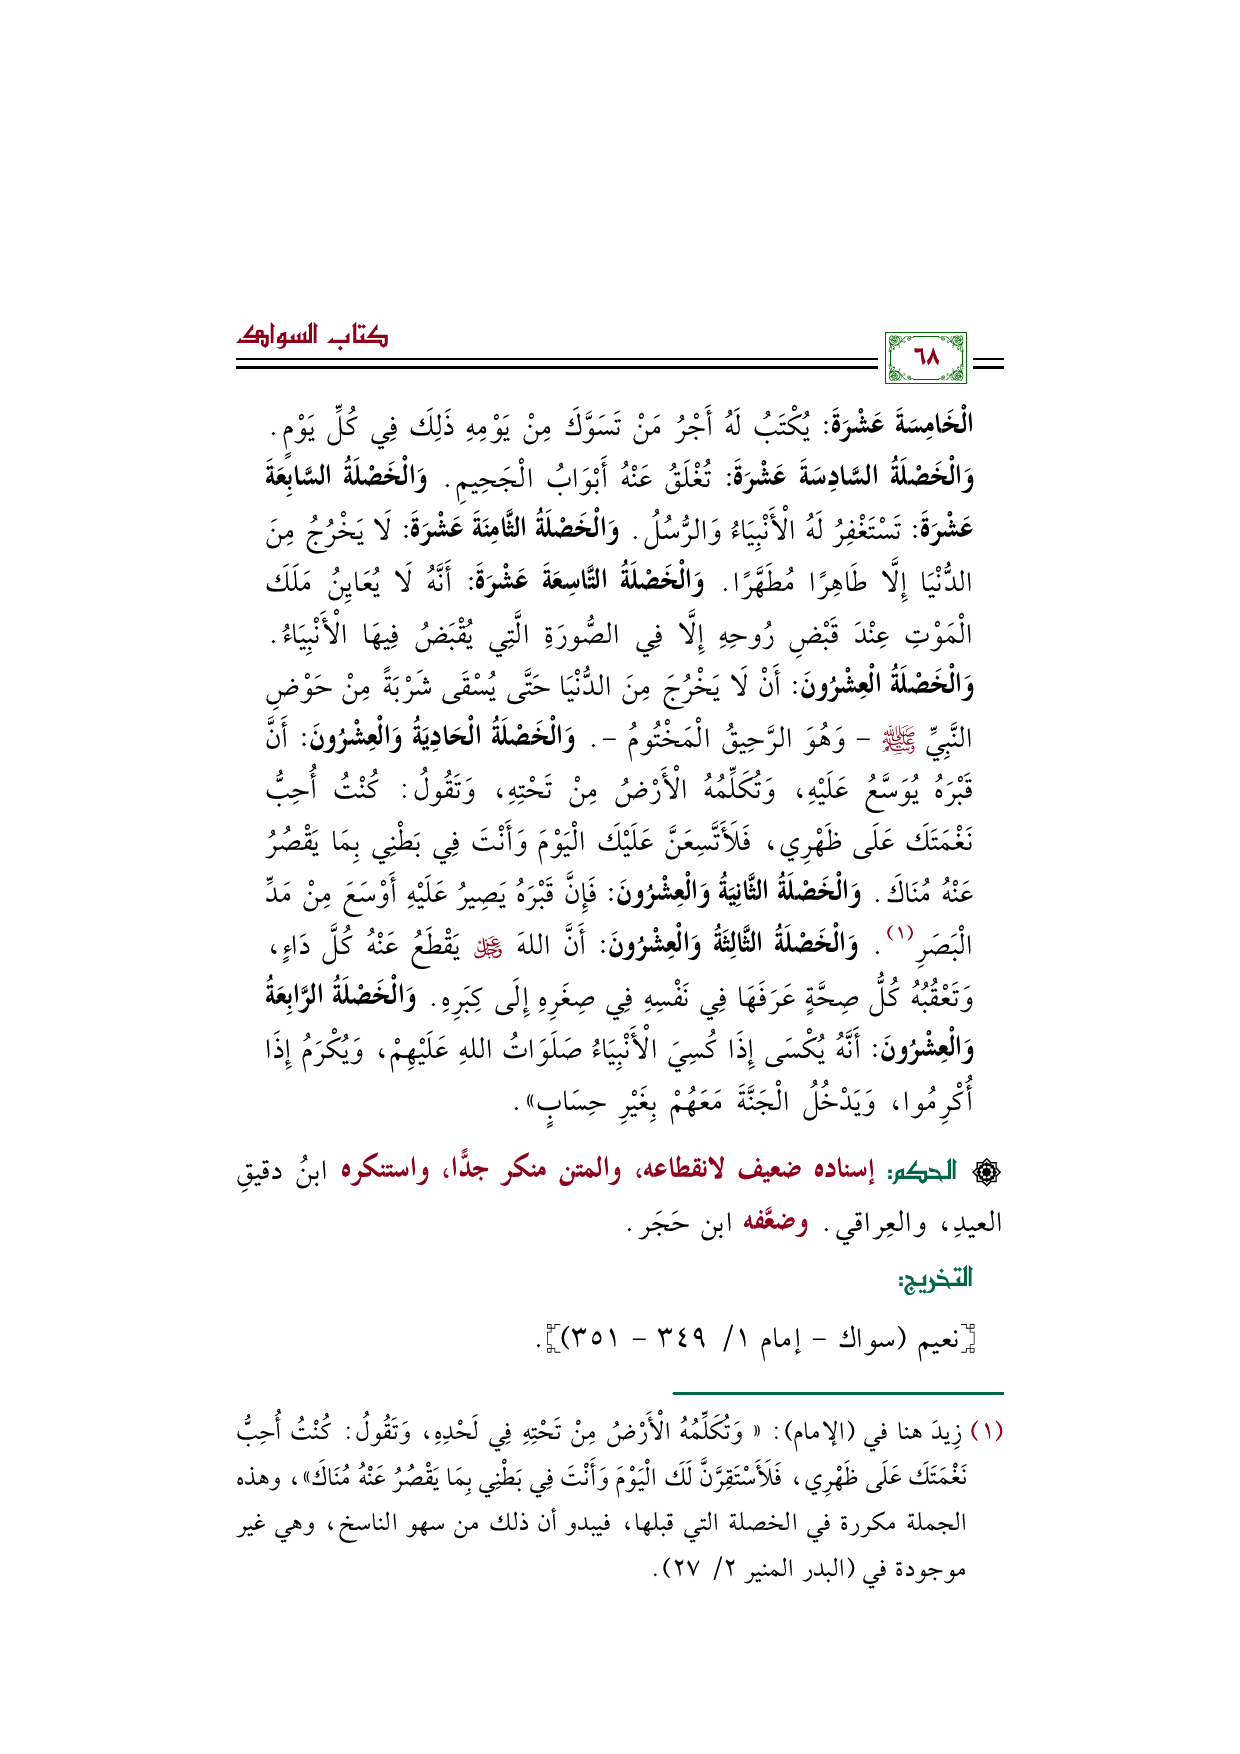 كتاب السواك
٦٨
الْخَامِسَةَ عَشْرَةَ: يُكْتَبُ لَهُ أَجْرُ مَنْ تَسَوَّكَ مِنْ يَوْمِهِ ذَلِكَ فِي كُلِّ يَوْمٍ.
وَالْخَصْلَةُ السَّادِسَةَ عَشْرَةَ: تُغْلَقُ عَنْهُ أَبْوَابُ الْجَحِيمِ. وَالْخَصْلَةُ السَّابِعَةَ
عَشْرَةَ: تَسْتَغْفِرُ لَهُ الْأَنْبِيَاءُ وَالرُّسُلُ. وَالْخَصْلَةُ الثَّامِنَةَ عَشْرَةَ: لَا يَخْرُجُ مِنَ
الدُّنْيَا إِلَّا طَاهِرًا مُطَهَّرًا. وَالْخَصْلَةُ التَّاسِعَةَ عَشْرَةَ: أَنَّهُ لَا يُعَايِنُ مَلَكَ
الْمَوْتِ عِنْدَ قَبْضِ رُوحِهِ إِلَّا فِي الصُّورَةِ الَّتِي يُقْبَضُ فِيهَا الْأَنْبِيَاءُ.
وَالْخَصْلَةُ الْعِشْرُونَ: أَنْ لَا يَخْرُجَ مِنَ الدُّنْيَا حَتَّى يُسْقَى شَرْبَةً مِنْ حَوْضِ
النَّبِيِّ ﷺ - وَهُوَ الرَّحِيقُ الْمَخْتُومُ -. وَالْخَصْلَةُ الْحَادِيَةُ وَالْعِشْرُونَ: أَنَّ
قَبْرَهُ يُوَسَّعُ عَلَيْهِ، وَتُكَلِّمُهُ الْأَرْضُ مِنْ تَحْتِهِ، وَتَقُولُ: كُنْتُ أُحِبُّ
نَغْمَتَكَ عَلَى ظَهْرِي، فَلَأَتَّسِعَنَّ عَلَيْكَ الْيَوْمَ وَأَنْتَ فِي بَطْنِي بِمَا يَقْصُرُ
عَنْهُ مُنَاكَ. وَالْخَصْلَةُ الثَّانِيَةُ وَالْعِشْرُونَ: فَإِنَّ قَبْرَهُ يَصِيرُ عَلَيْهِ أَوْسَعَ مِنْ مَدِّ
الْبَصَرِ(١). وَالْخَصْلَةُ الثَّالِثَةُ وَالْعِشْرُونَ: أَنَّ اللهَ ﷻ يَقْطَعُ عَنْهُ كُلَّ دَاءٍ،
وَتَعْقُبُهُ كُلُّ صِحَّةٍ عَرَفَهَا فِي نَفْسِهِ فِي صِغَرِهِ إِلَى كِبَرِهِ. وَالْخَصْلَةُ الرَّابِعَةُ
وَالْعِشْرُونَ: أَنَّهُ يُكْسَى إِذَا كُسِيَ الْأَنْبِيَاءُ صَلَوَاتُ اللهِ عَلَيْهِمْ، وَيُكْرَمُ إِذَا
أُكْرِمُوا، وَيَدْخُلُ الْجَنَّةَ مَعَهُمْ بِغَيْرِ حِسَابٍ».
الحكم: إسناده ضعيف لانقطاعه، والمتن منكر جدًّا، واستنكره ابنُ دقيقِ
العيدِ، والعِراقي. وضعَّفه ابن حَجَر.
التخريج:
[نعيم (سواك - إمام ١/ ٣٤٩ - ٣٥١)].
(١) زِيدَ هنا في (الإمام): « وَتُكَلِّمُهُ الْأَرْضُ مِنْ تَحْتِهِ فِي لَحْدِهِ، وَتَقُولُ: كُنْتُ أُحِبُّ
نَغْمَتَكَ عَلَى ظَهْرِي، فَلَأَسْتَقِرَّنَّ لَكَ الْيَوْمَ وَأَنْتَ فِي بَطْنِي بِمَا يَقْصُرُ عَنْهُ مُنَاكَ»، وهذه
الجملة مكررة في الخصلة التي قبلها، فيبدو أن ذلك من سهو الناسخ، وهي غير
موجودة في (البدر المنير ٢/ ٢٧).